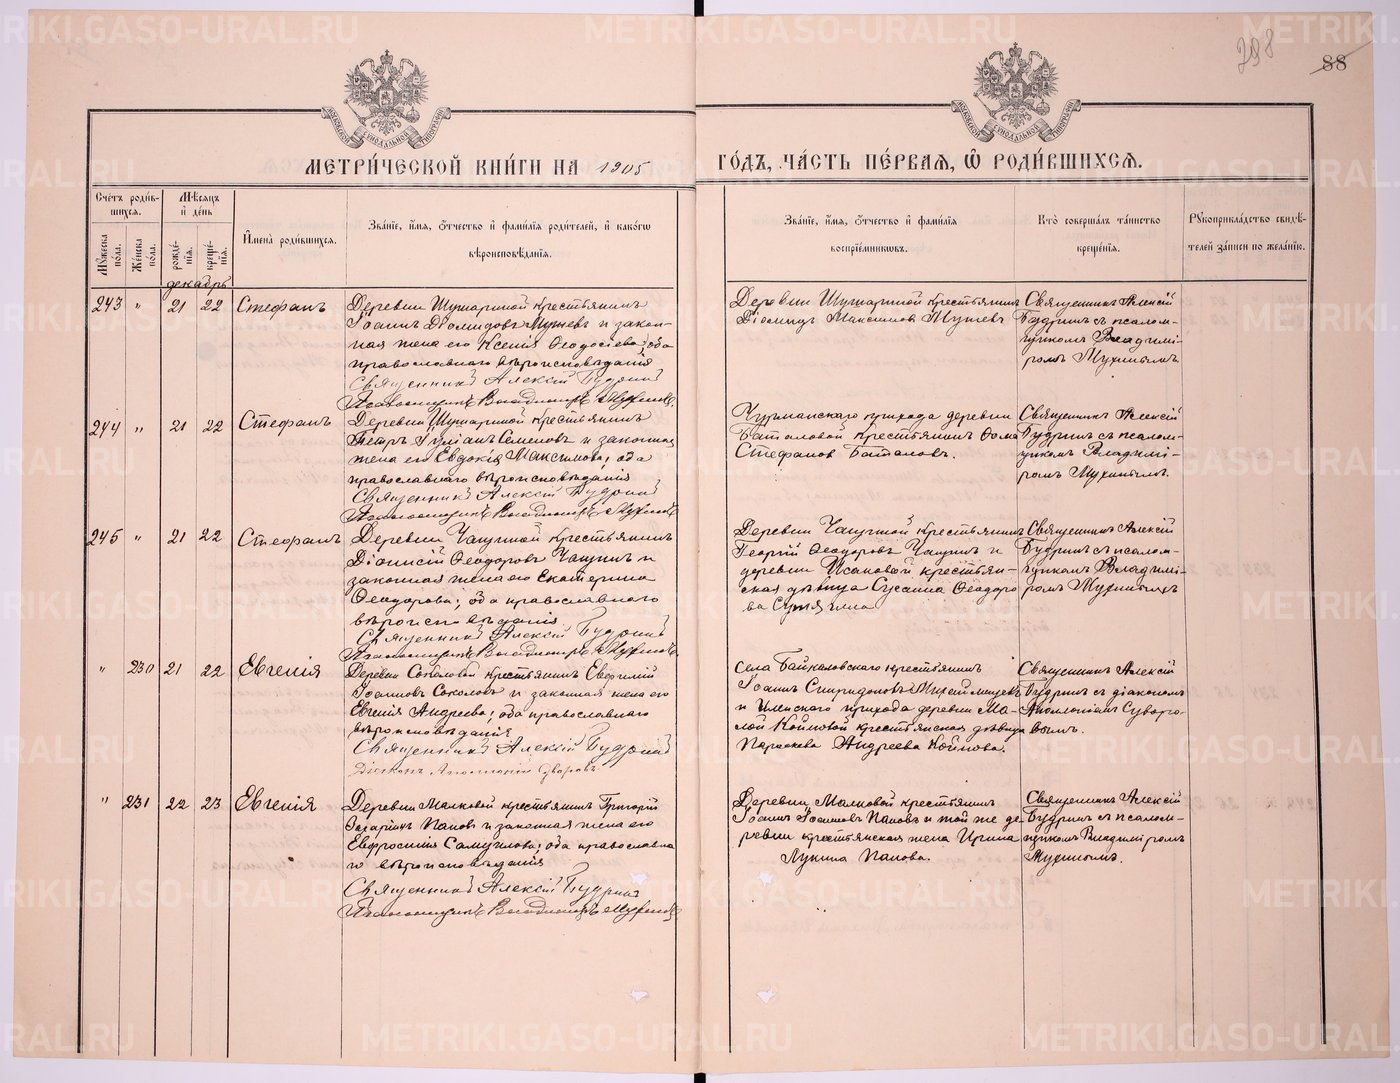 298
88
МОСКОВСКОЙ СѴНОДАЛЬНОЙ ТИПОГРАФІИ
МОСКОВСКОЙ СѴНОДАЛЬНОЙ ТИПОГРАФІИ
МЕТРИ́ЧЕСКОЙ КНИ́ГИ НА 1905
ГО́ДЪ, ЧА́СТЬ ПЕ́РВАЯ, Ѡ҆ РОДИ́ВШИХСЯ.
Сче́тъ роди́в-
шихся.
Мѣ́сяцъ
и҆ де́нь
Мꙋ́жеска
по́ла.
Же́нска
по́ла.
рожде́-
нїя.
креще́-
нїя.
И҆мена̀ роди́вшихся.
Зва́нїе, и҆́мя, ѻ҆́тчество и҆ фами́лїя роди́телей, и҆ како́гѡ
вѣроисповѣ́данїя.
Зва́нїе, и҆́мя, ѻ҆́тчество и҆ фами́лїя
воспрїе́мниковъ.
Кто̀ соверша́лъ та́инство
креще́нїя.
Рꙋкоприкла́дство свидѣ́-
телей за́писи по жела́нїю.
декабрь
243 " 21 22 Стефанъ
Деревни Шушариной крестьянинъ
Іоаннъ Діомидовъ Мушевъ и закон-
ная жена его Ксенія Ѳеодосіева; оба
православнаго вѣроисповѣданія
Священникъ Алексій Будринъ
Псаломщикъ Владиміръ Мухинъ
Деревни Шушариной крестьянинъ
Діомидъ Максимовъ Мушевъ
Священникъ Алексій
Будринъ съ псалом-
щикомъ Владимі-
ромъ Мухинымъ
244 " 21 22 Стефанъ
Деревни Шушариной крестьянинъ
Петръ Семеновъ и законная
жена его Евдокія Максимова; оба
православнаго вѣроисповѣданія
Священникъ Алексій Будринъ
Псаломщикъ Владиміръ Мухинъ
прихода деревни
Баталовой крестьянинъ Ѳома
Стефановъ Баталовъ.
Священникъ Алексій
Будринъ съ псалом-
щикомъ Владимі-
ромъ Мухинымъ.
245 " 21 22 Стефанъ
Деревни Чащиной крестьянинъ
Діонисій Ѳеодоровъ Чащинъ и
законная жена его Екатерина
Ѳеодорова; оба православнаго
вѣроисповѣданія
Священникъ Алексій Будринъ
Псаломщикъ Владиміръ Мухинъ
Деревни Чащиной крестьянинъ
Георгій Ѳеодоровъ Чащинъ и
деревни Исаковой крестьян-
ская дѣвица Сусанна Ѳеодоро
ва
Священникъ Алексій
Будринъ съ псалом-
щикомъ Владимі-
ромъ Мухинымъ
" 230 21 22 Евгенія
Деревни Соколовой крестьянинъ Евфимій
Іоанновъ Соколовъ и законная жена его
Евгенія Андреева; оба православнаго
вѣроисповѣданія
Священникъ Алексій Будринъ
Діаконъ Аполлоній
Села Байкаловскаго крестьянинъ
Іоаннъ Спиридоновъ
и прихода деревни Ма-
лой Койновой крестьянская дѣвица
Параскева Андреева Койнова.
Священникъ Алексій
Будринъ съ діакономъ
Аполлоніемъ Суворо-
вымъ.
" 231 22 23 Евгенія
Деревни Малковой крестьянинъ Григорій
Захаринъ Пановъ и законная жена его
Евфросинія Самуилова; оба православна
го вѣроисповѣданія
Священникъ Алексій Будринъ
Псаломщикъ Владиміръ Мухинъ
Деревни Малковой крестьянинъ
Іоаннъ Іоанновъ Пановъ и той же де
ревни крестьянская жена Ирина
Лукина Панова.
Священникъ Алексій
Будринъ съ псалом-
щикомъ Владиміромъ
Мухинымъ.
METRIKI.GASO-URAL.RU